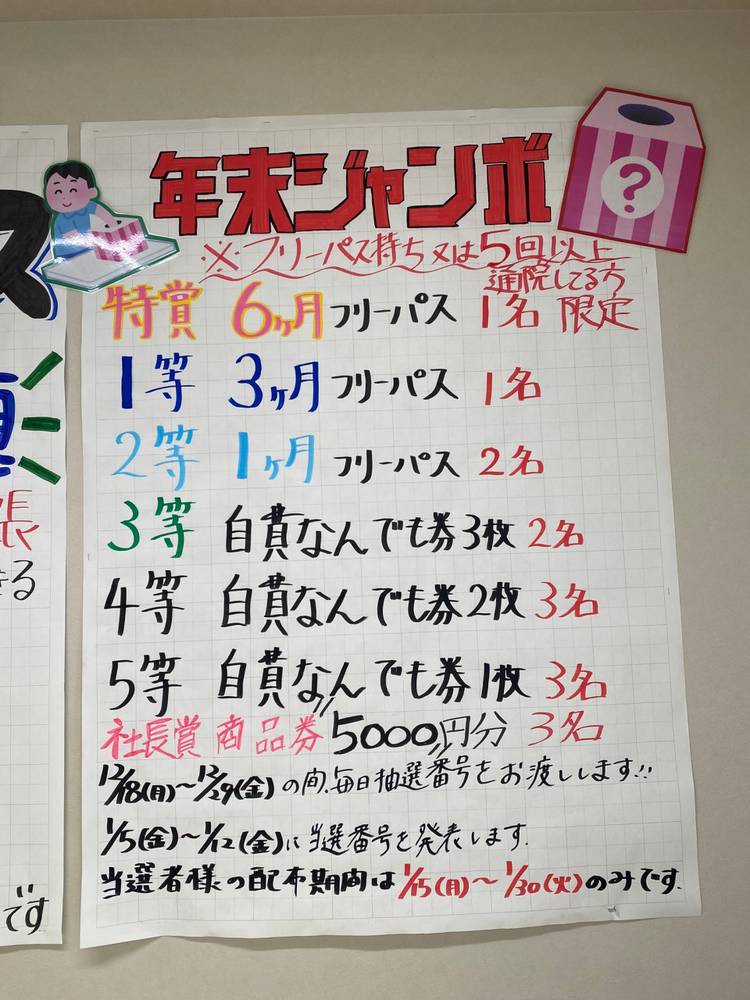 年末ジャンボ
※フリーパス持ち又は5回以上
通院してる方
限定
特賞 6ヶ月フリーパス 1名
1等 3ヶ月フリーパス 1名
2等 1ヶ月フリーパス 2名
3等 自費なんでも券3枚 2名
4等 自費なんでも券2枚 3名
5等 自費なんでも券1枚 3名
社長賞 商品券 5000円分 3名
12/18(月)~12/29(金)の間、毎日抽選番号をお渡しします!!
1/5(金)~1/12(金)に当選番号を発表します.
当選者様の配布期間は1/15(月)~1/30(火)のみです.
?
ス
張
きる
です